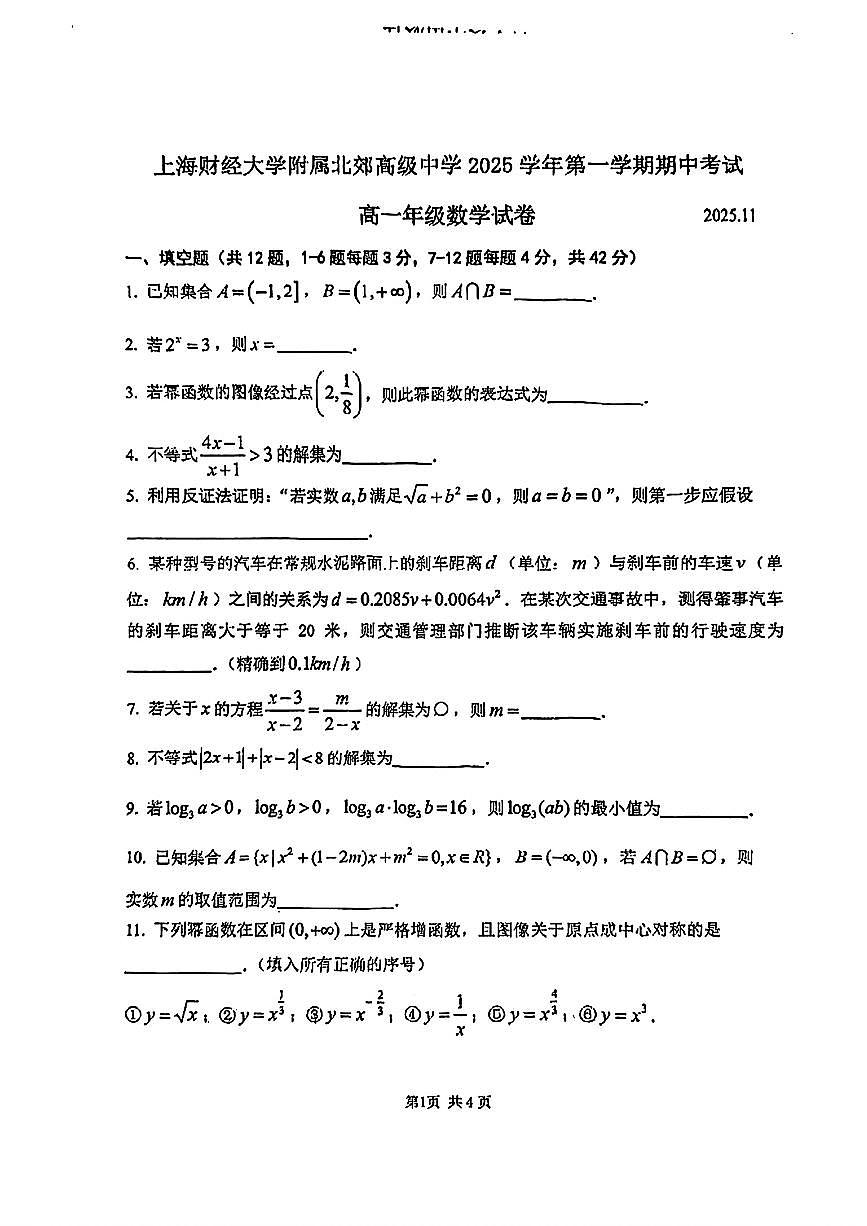 上海财经大学附属北郊高级中学 2025 学年第一学期期中考试
高一年级数学试卷 2025.11
一、填空题（共 12 题，1-6 题每题 3 分，7-12 题每题 4 分，共 42 分）
1. 已知集合 A=(-1,2]，B=(1,+∞)，则 A∩B=________.
2. 若 2^x=3，则 x=________.
3. 若幂函数的图像经过点(2,1/8)，则此幂函数的表达式为________.
4. 不等式 (4x-1)/(x+1)>3 的解集为________.
5. 利用反证法证明：“若实数 a,b 满足 √a+b²=0，则 a=b=0”，则第一步应假设
________.
6. 某种型号的汽车在常规水泥路面上的刹车距离 d（单位：m）与刹车前的车速 v（单
位：km/h）之间的关系为 d=0.2085v+0.0064v². 在某次交通事故中，测得肇事汽车
的刹车距离大于等于 20 米，则交通管理部门推断该车辆实施刹车前的行驶速度为
________.（精确到 0.1km/h）
7. 若关于 x 的方程 (x-3)/(x-2)=m/(2-x) 的解集为∅，则 m=________.
8. 不等式|2x+1|+|x-2|<8 的解集为________.
9. 若 log₃a>0，log₃b>0，log₃a·log₃b=16，则 log₃(ab) 的最小值为________.
10. 已知集合 A={x|x²+(1-2m)x+m²=0,x∈R}，B=(-∞,0)，若 A∩B=∅，则
实数 m 的取值范围为________.
11. 下列幂函数在区间(0,+∞)上是严格增函数，且图像关于原点成中心对称的是
________.（填入所有正确的序号）
①y=√x；②y=x^(1/3)；③y=x^(-2/3)；④y=1/x；⑤y=x^(4/3)；⑥y=x³.
第1页 共4页